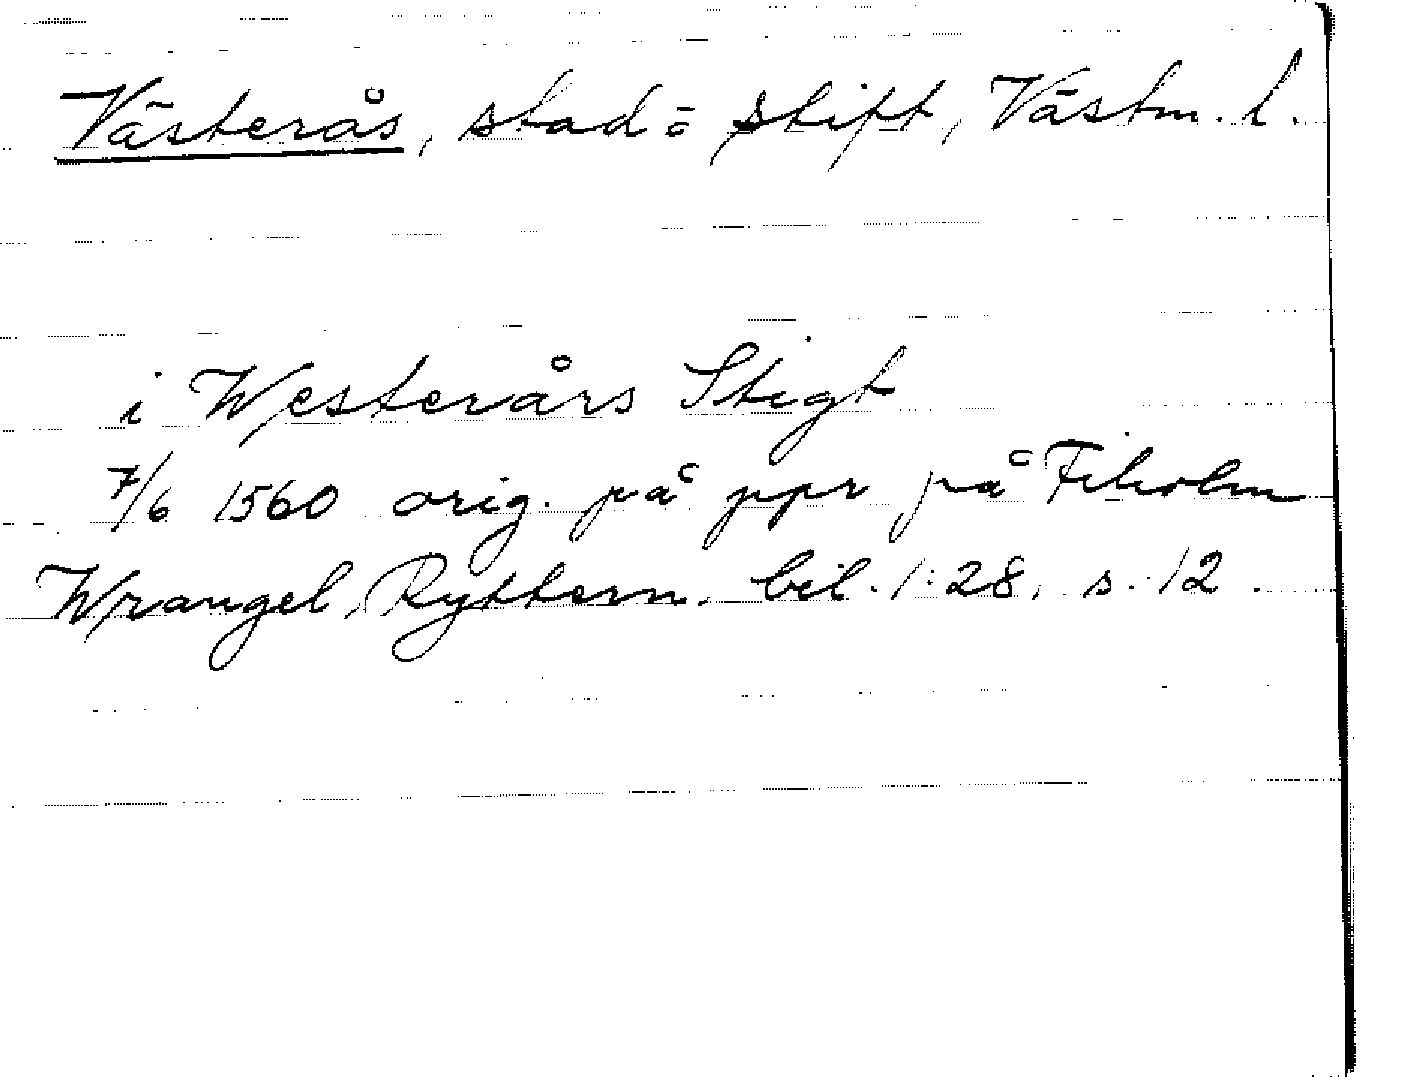 Västerås, stad o. stift, Västm. l.
i Westerårs Stigt
7/6 1560 orig. på ppr på Fiholm
Wrangel, Ryttern. bil. 1:28, s. 12.